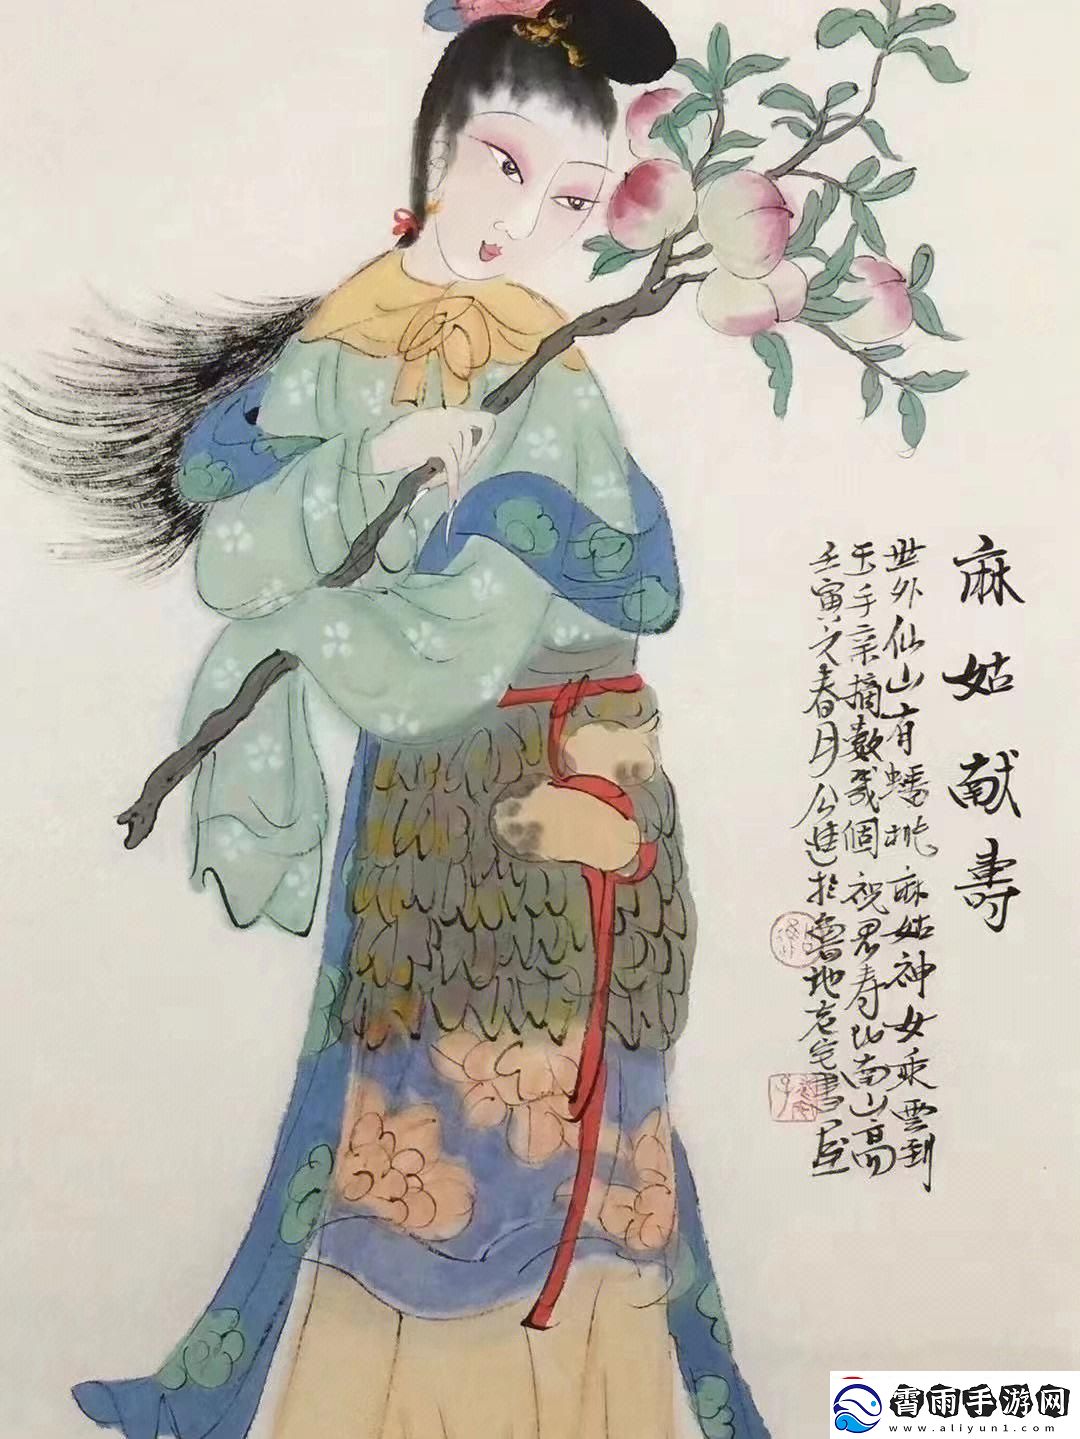 麻姑献壽
世外仙山有蟠桃麻姑神女乘雲到
玉手亲摘數幾個祝君寿比南山高
壬寅之春月公進於魯地石宅書屋
霄雨手游网
www.aliyun1.com